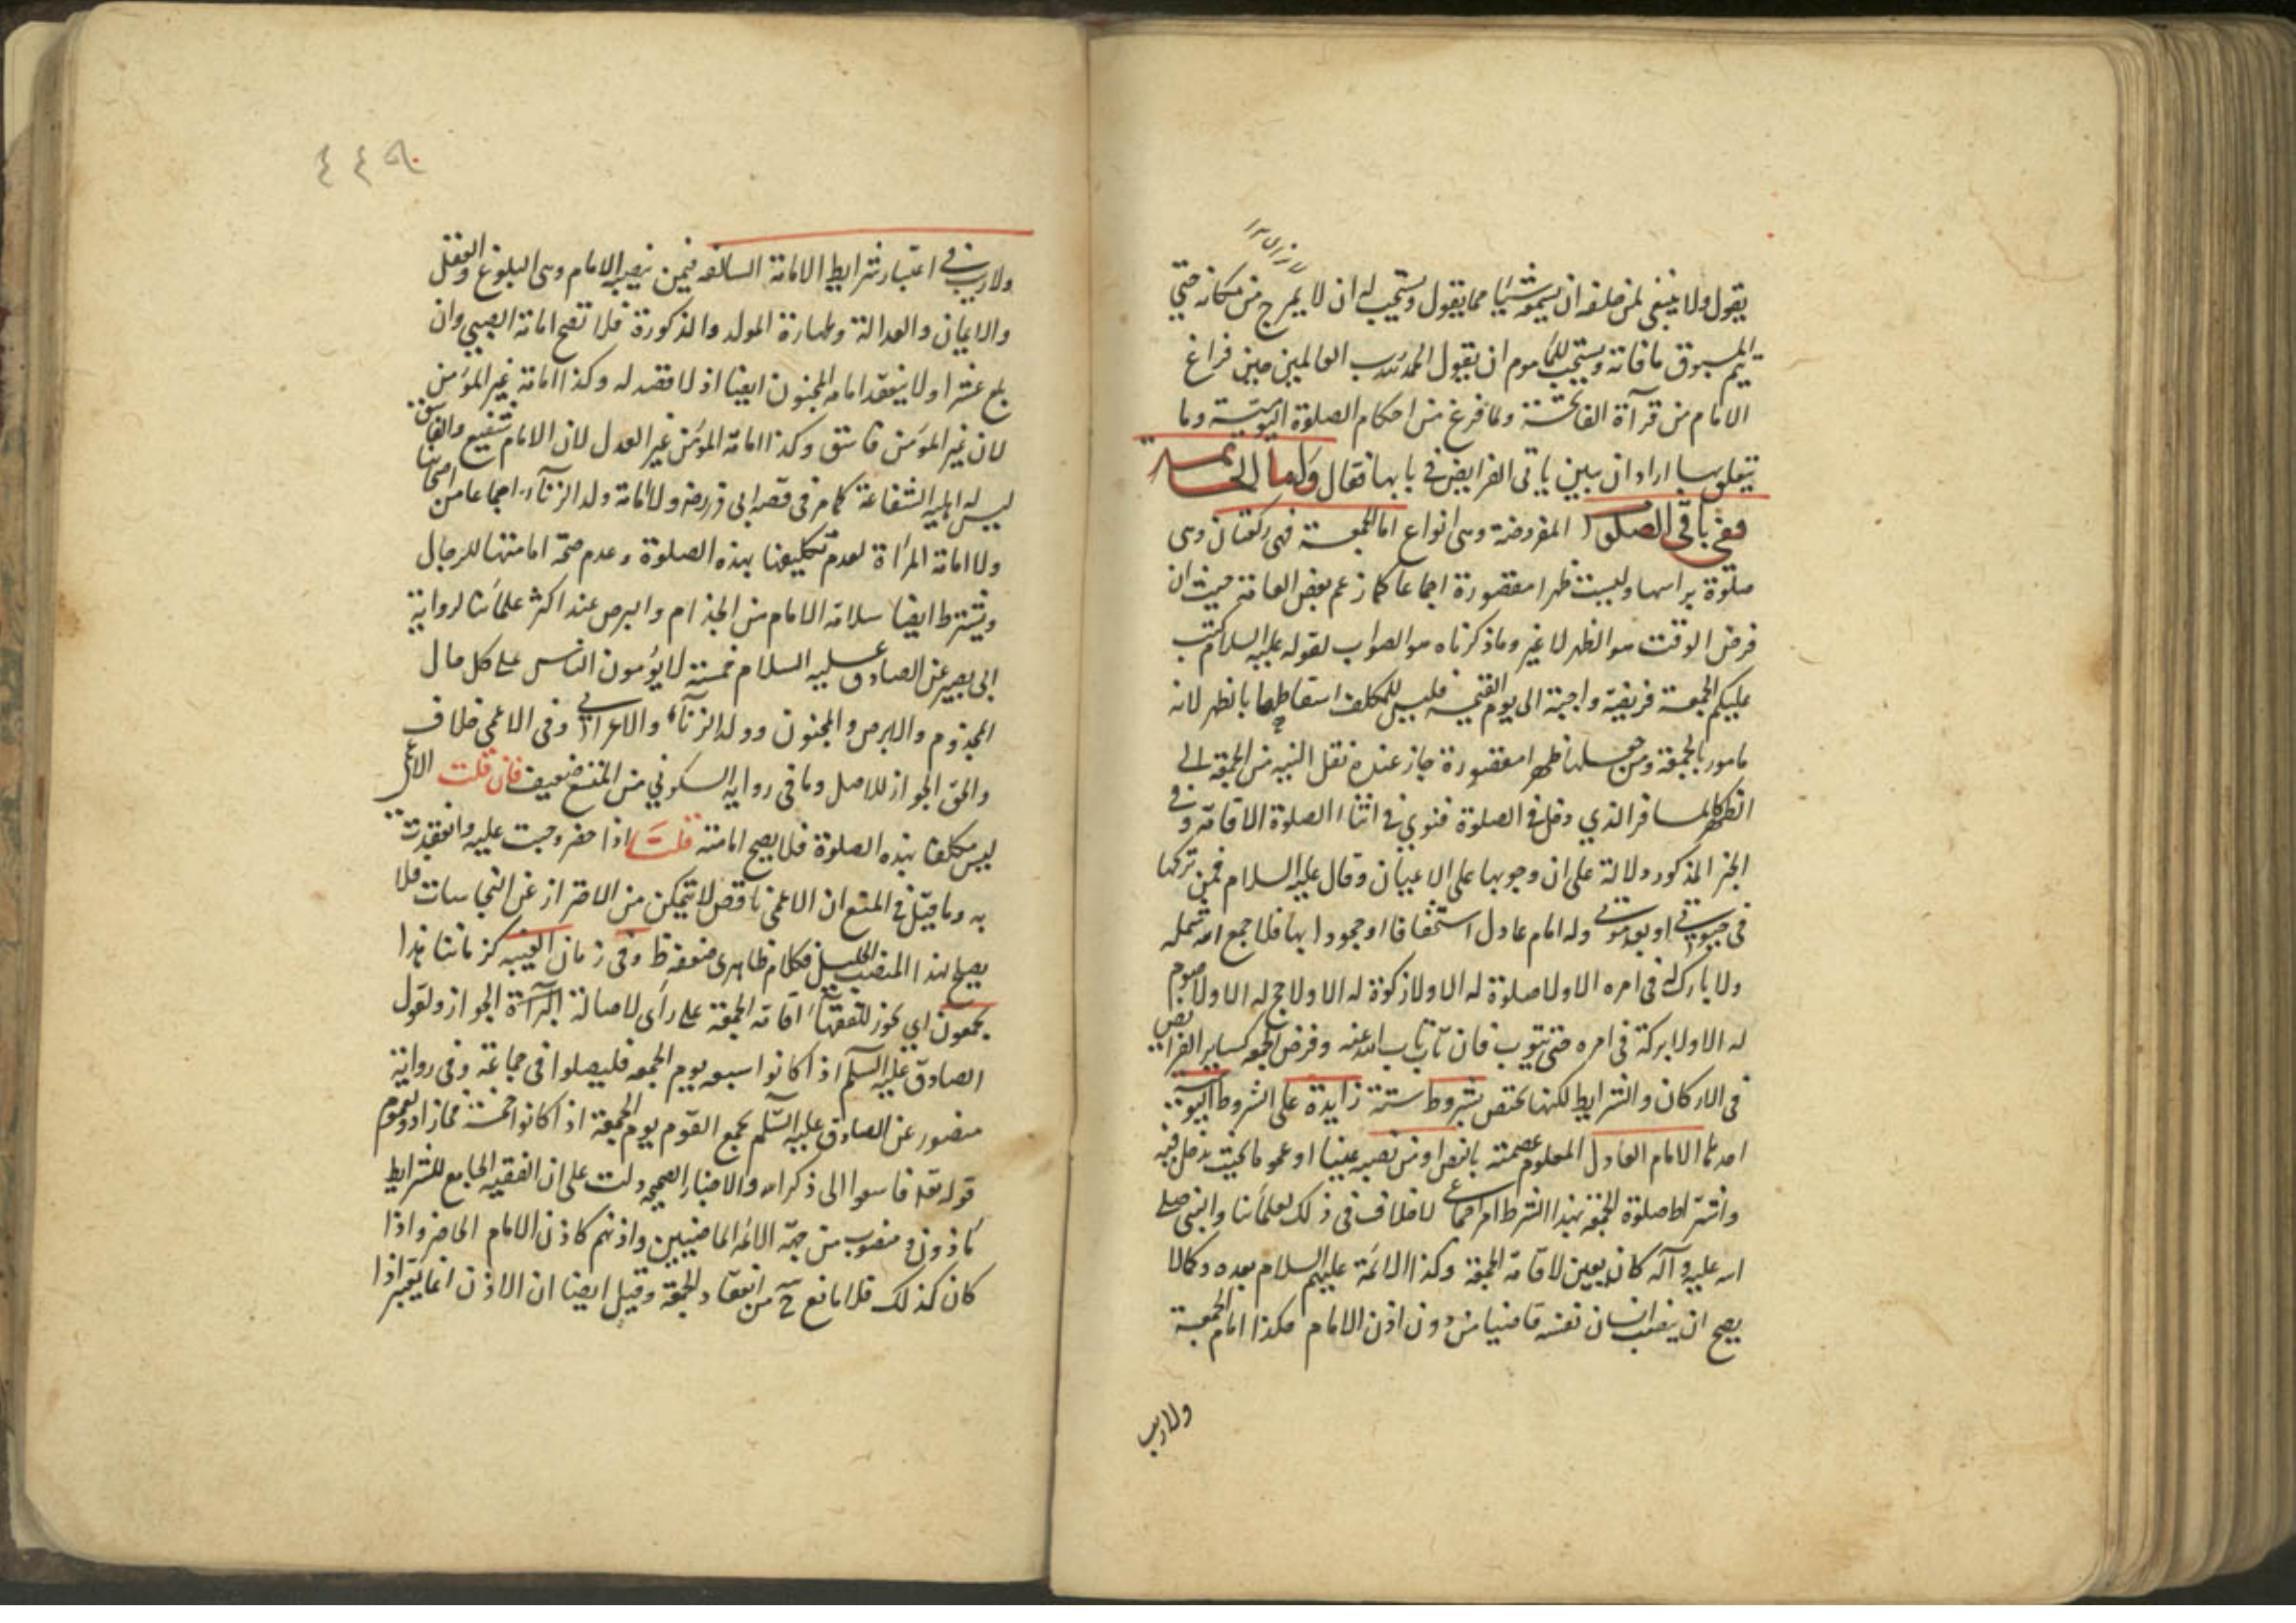 يقول ولا ينبغي لمن خلفه ان يسمعه شيئا مما يقول ويستحب له ان لا يبرح من مكانه حتى
يتم المسبوق ما فاته ويستحب للماموم ان يقول الحمد لله رب العالمين حين فراغ
الامام من قرآة الفاتحة ولما فرغ من احكام الصلوة اليومية وما
يتعلق بها اراد ان يبين باقى الفرايض في بابها فقال واما الخاتمة
ففى باقى الصلوا المفروضة وهى انواع اما الجمعة فهى ركعتان وهى
صلوة براسها وليست ظهرا مقصورة اجماعا كما زعم بعض العامة حيث ان
فرض الوقت هو الظهر لا غير وما ذكرناه هو الصواب لقوله عليه السلام كتب
عليكم الجمعة فريضة واجبة الى يوم القيمة فليس للمكلف اسقاطها بالظهر لانه
مامور بالجمعة ومن جعلها ظهرا مقصورة جاز عنده نقل النية من الجمعة الى
الظهر كالمسافر الذي دخل في الصلوة فنوى في اثنا الصلوة الاقامة وفي
الخبر المذكور دلالة على ان وجوبها على الاعيان وقال عليه السلام فمن تركها
فى حيوتي او بعد موتي وله امام عادل استخفافا او جحودا بها فلا جمع الله شمله
ولا بارك له فى امره الا ولا صلوة له الا ولا زكوة له الا ولا حج له الا ولا صوم
له الا ولا بركة فى امره حتى يتوب فان تاب تاب الله عنه وفرض الجمعة كساير الفرايض
فى الاركان والشرايط لكنها تختص بشروط ستة زايدة على الشروط اليومية
احدها الامام العادل المعلوم عصمته بالنص او من نصبه عينا او عموما بحيث يدخل فيه
واشتراط صلوة الجمعة بهذا الشرط امر اجماعي لا خلاف فى ذلك لعلمائنا والنبى صلى
الله عليه وآله كان يعين لاقامة الجمعة وكذا الائمة عليهم السلام بعده وكما لا
يصح ان ينصب انسان نفسه قاضيا من دون اذن الامام هكذا امام الجمعة
ولا ريب
٤٤٥
ولا ريب في اعتبار شرايط الامامة السالفه فيمن نصبه الامام وهى البلوغ والعقل
والايمان والعدالة وطهارة المولد والذكورة فلا تصح امامة الصبي وان
بلغ عشرا ولا ينعقد امامة المجنون ايضا اذ لا قصد له وكذا امامة غير المؤمن
لان غير المؤمن فاسق وكذا امامة المؤمن غير العدل لان الامام شفيع والفاسق
ليس له اهلية الشفاعة كما مر فى قصه ابى ذر رض ولا امامة ولد الزنآء اجماعا من اصحابنا
ولا امامة المرأة لعدم تكليفها بهذه الصلوة وعدم صحة امامتها للرجال
ويشترط ايضا سلامة الامام من الجذام والبرص عند اكثر علمائنا لرواية
ابى بصير عن الصادق عليه السلام خمسة لا يؤمون الناس على كل حال
المجذوم والابرص والمجنون وولد الزنآء والاعرابي وفى الاعمى خلاف
والحق الجواز للاصل وما فى رواية السكوني من المنع ضعيف فان قلت الاعمى
ليس مكلفا بهذه الصلوة فلا يصح امامته قلت اذا حضر وجبت عليه وانعقدت
به وما قيل في المنع ان الاعمى ناقص لا يتمكن من الاحتراز عن النجاسات فلا
يصح لهذا المنصب الجليل فكلام ظاهرى ضعفه ظ وفى زمان الغيبه كزماننا هذا
يجمعون اي يجوز للفقهآء اقامة الجمعة على رأى لاصالة البرآءة الجواز ولقول
الصادق عليه السلم اذا كانوا سبعه يوم الجمعه فليصلوا فى جماعة وفى رواية
منصور عن الصادق عليه السلم يجمع القوم يوم الجمعة اذا كانوا خمسة فما زادوا لعموم
قوله تعه فاسعوا الى ذكر الله والاخبار الصحيحه دلت على ان الفقيه الجامع للشرايط
مأذون ومنصوب من جهة الائمة الماضيين واذنهم كاذن الامام الحاضر واذا
كان كذلك فلا مانع ح من انعقاد الجمعة وقيل ايضا ان الاذن انما يعتبر اذا